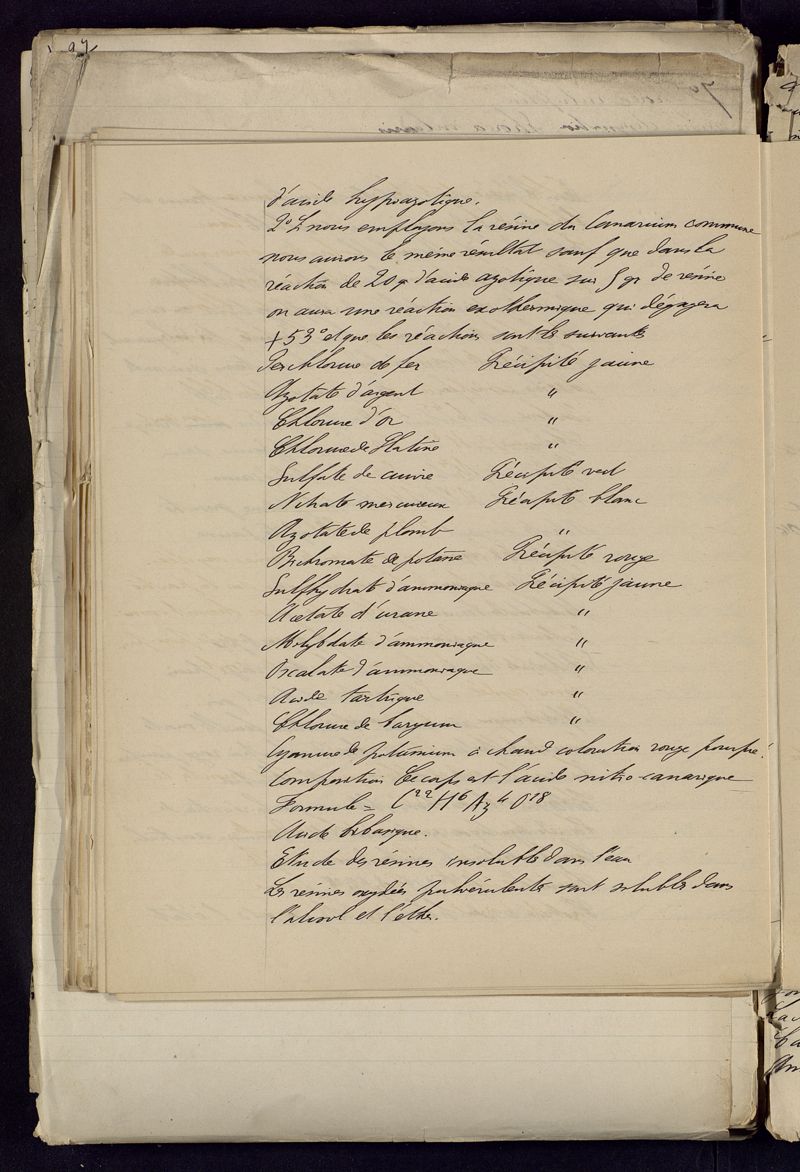 97
d'acide hypoazotique.
2° Si nous employons la résine du Canarium commune
nous aurons le même résultat sauf que dans la
réaction de 20 gr d'acide azotique sur 5 gr de résine
on aura une réaction exothermique qui dégagera
+ 53° et que les réactions sont les suivantes
Perchlorure de fer Précipité jaune
Azotate d'argent "
Chlorure d'or "
Chlorure de Platine "
Sulfate de cuivre Précipité vert
Nitrate mercureux Précipité blanc
Azotate de plomb "
Bichromate de potasse Précipité rouge
Sulfhydrate d'ammoniaque Précipité jaune
Acétate d'urane "
Molybdate d'ammoniaque "
Oxalate d'ammoniaque "
Acide tartrique "
Chlorure de baryum "
Cyanure de potassium à chaud coloration rouge pourpre.
Composition Ce corps est l'acide nitro-canarique
Formule = C²² H⁶ Az⁴ O¹⁸
Acide bibasique.
Etude des résines insoluble dans l'eau
Les résines oxydées pulvérulente sont soluble dans
l'alcool et l'éther.